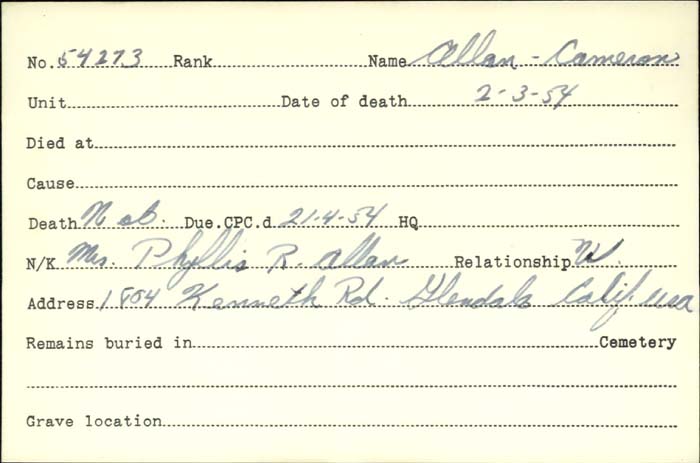 No. 54273 Rank Name Allan - Cameron
Unit Date of death 2-3-54
Died at
Cause
Death Not. Due.CPC.d 21-4-54 HQ
N/K Mrs. Phyllis R. Allan Relationship W.
Address 1804 Kenneth Rd. Glendale Calif. USA
Remains buried in Cemetery
Grave location